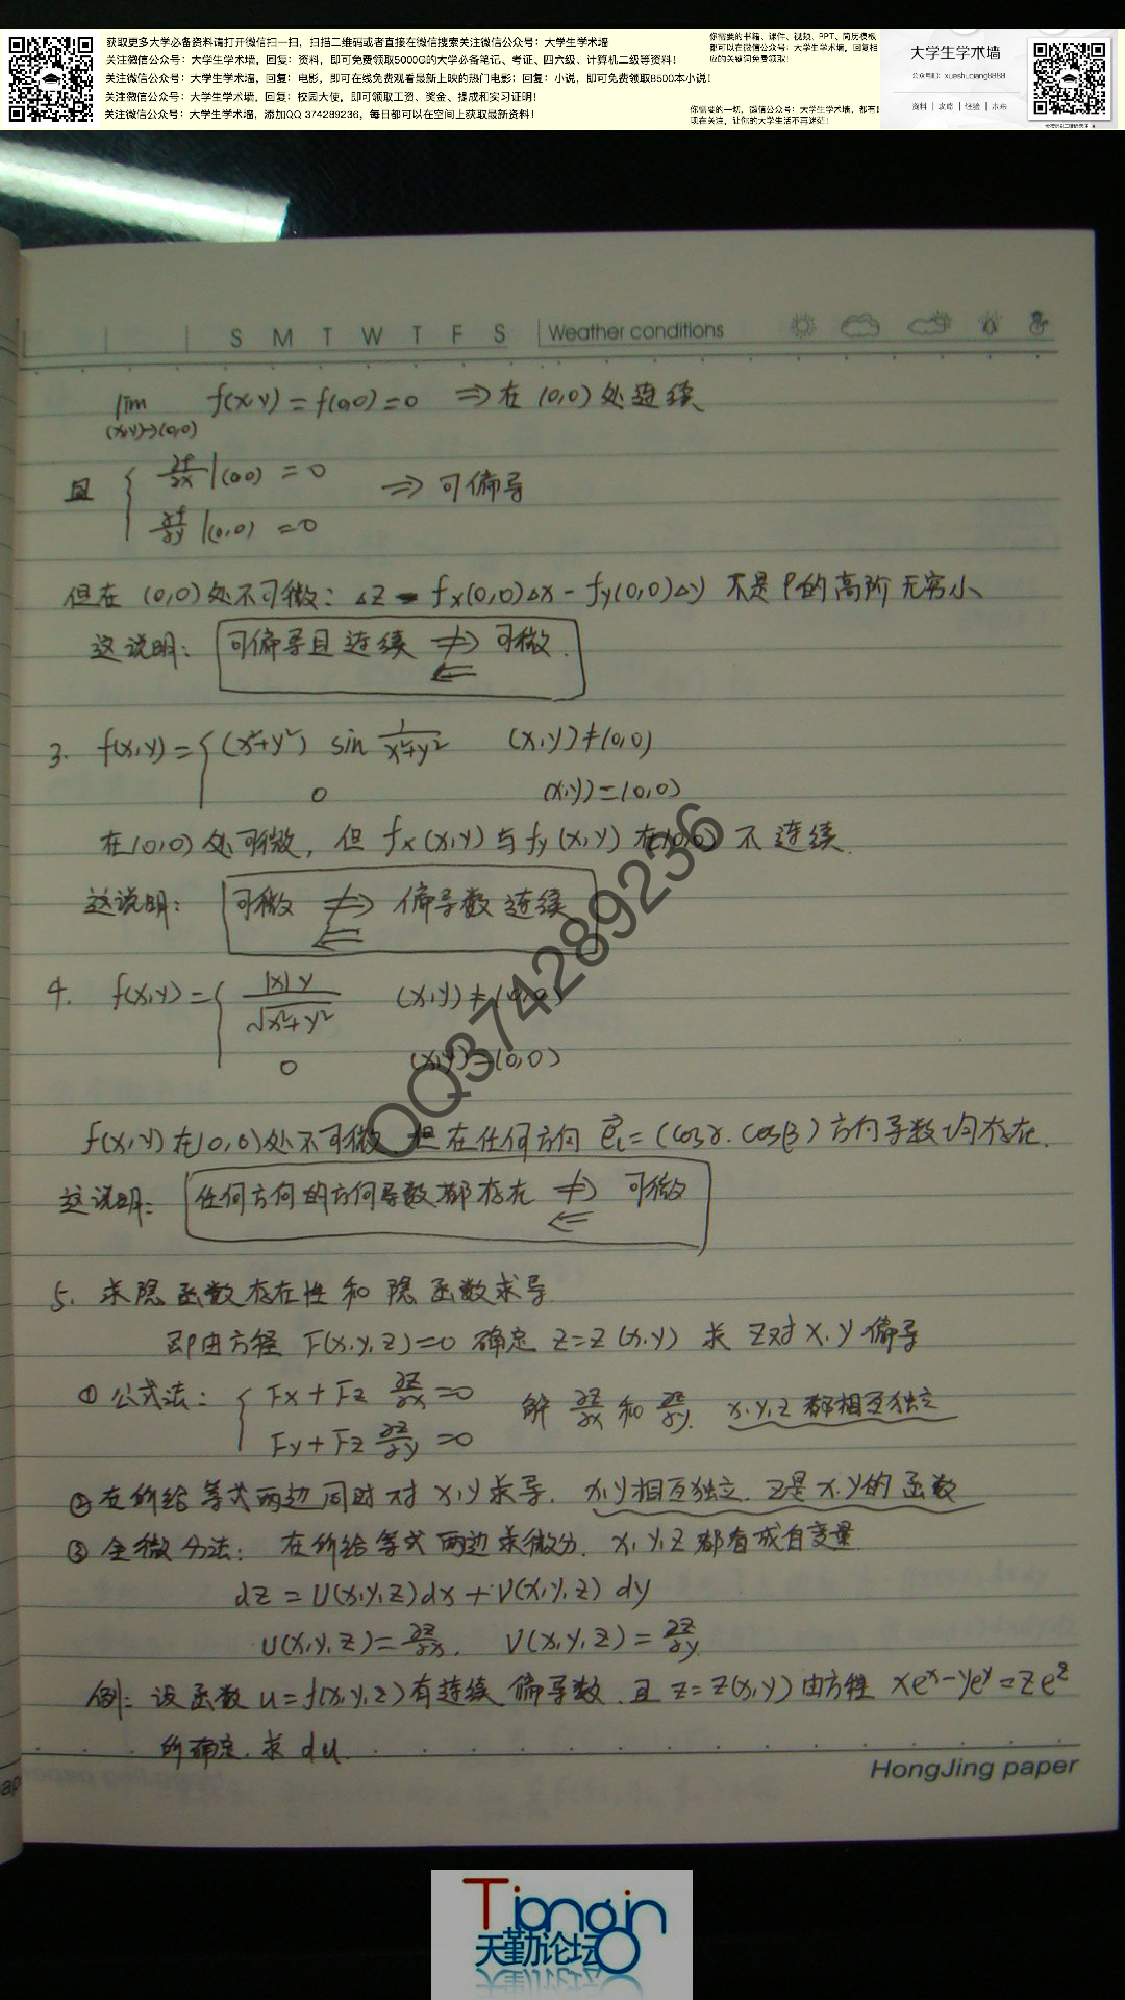 获取更多大学必备资料请打开微信扫一扫，扫描二维码或者直接在微信搜索关注微信公众号：大学生学术墙
关注微信公众号：大学生学术墙，回复：资料，即可免费领取5000G的大学必备笔记、考证、四六级、计算机二级等资料！
关注微信公众号：大学生学术墙，回复：电影，即可在线免费观看最新上映的热门电影；回复：小说，即可免费领取8500本小说！
关注微信公众号：大学生学术墙，回复：校园大使，即可领取工资、奖金、提成和实习证明！
关注微信公众号：大学生学术墙，添加QQ 374289236，每日都可以在空间上获取最新资料！
你需要的书籍、课件、视频、PPT、简历模板
都可以在微信公众号：大学生学术墙，回复相
应的关键词免费获取！
你需要的一切，微信公众号：大学生学术墙，都有！
现在关注，让你的大学生活不再迷茫！
大学生学术墙
公众号ID：xueshuqiang8888
资料 | 攻略 | 经验 | 未来
S M T W T F S Weather conditions
lim f(x,y)=f(0,0)=0 ⇒在(0,0)处连续
(x,y)→(0,0)
且 { ∂f/∂x|(0,0) = 0 ⇒可偏导
∂f/∂y|(0,0) = 0
但在(0,0)处不可微：△z - fx(0,0)△x - fy(0,0)△y 不是ρ的高阶无穷小
这说明：可偏导且连续 ⇏ 可微.
⇐
3. f(x,y)={ (x²+y²) sin 1/(x²+y²) (x,y)≠(0,0)
0 (x,y)=(0,0)
在(0,0)处可微，但 fx(x,y)与fy(x,y)在(0,0)不连续.
这说明：可微 ⇏ 偏导数连续
⇐
4. f(x,y)={ |x|y/√(x²+y²) (x,y)≠(0,0)
0 (x,y)=(0,0)
f(x,y)在(0,0)处不可微,但在任何方向 e_l=(cosα.cosβ)方向导数均存在.
这说明：任何方向的方向导数都存在 ⇏ 可微
⇐
5. 求隐函数存在性和隐函数求导
即由方程 F(x,y,z)=0 确定 z=z(x,y) 求 z对x,y偏导
① 公式法：{ Fx+Fz ∂z/∂x=0 解 ∂z/∂x 和 ∂z/∂y. x,y,z都相互独立
Fy+Fz ∂z/∂y=0
② 在所给等式两边同时对x,y求导. x,y相互独立. z是x.y的函数
③ 全微分法：在所给等式两边求微分. x,y,z都看成自变量
dz = U(x,y,z)dx+V(x,y,z)dy
U(x,y,z)=∂z/∂x. V(x,y,z)=∂z/∂y
例：设函数u=f(x,y,z)有连续偏导数.且z=z(x,y)由方程 xeˣ-yeʸ=zeᶻ
所确定.求du.
HongJing paper
QQ374289236
Tianqin
天勤论坛